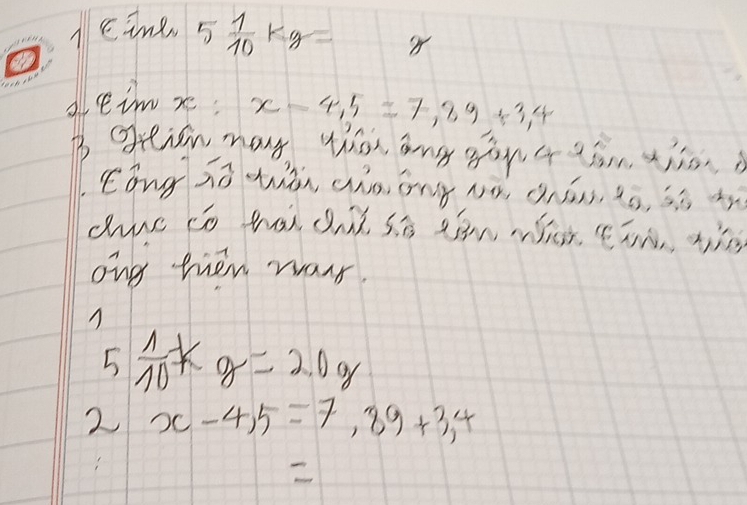 1 Tính 5 1/10 Kg = g
2 Tìm x : x - 4,5 = 7,89 + 3,4
3 Hiện nay tuổi ông gấp 4 lần tuổi
. Tổng số tuổi của ông và cháu là số
chục có hai chữ số lớn nhất Tính tuổi
ông hiện nay.
1
5 1/10 K g = 20g
2 x - 4,5 = 7,89 + 3,4
: =